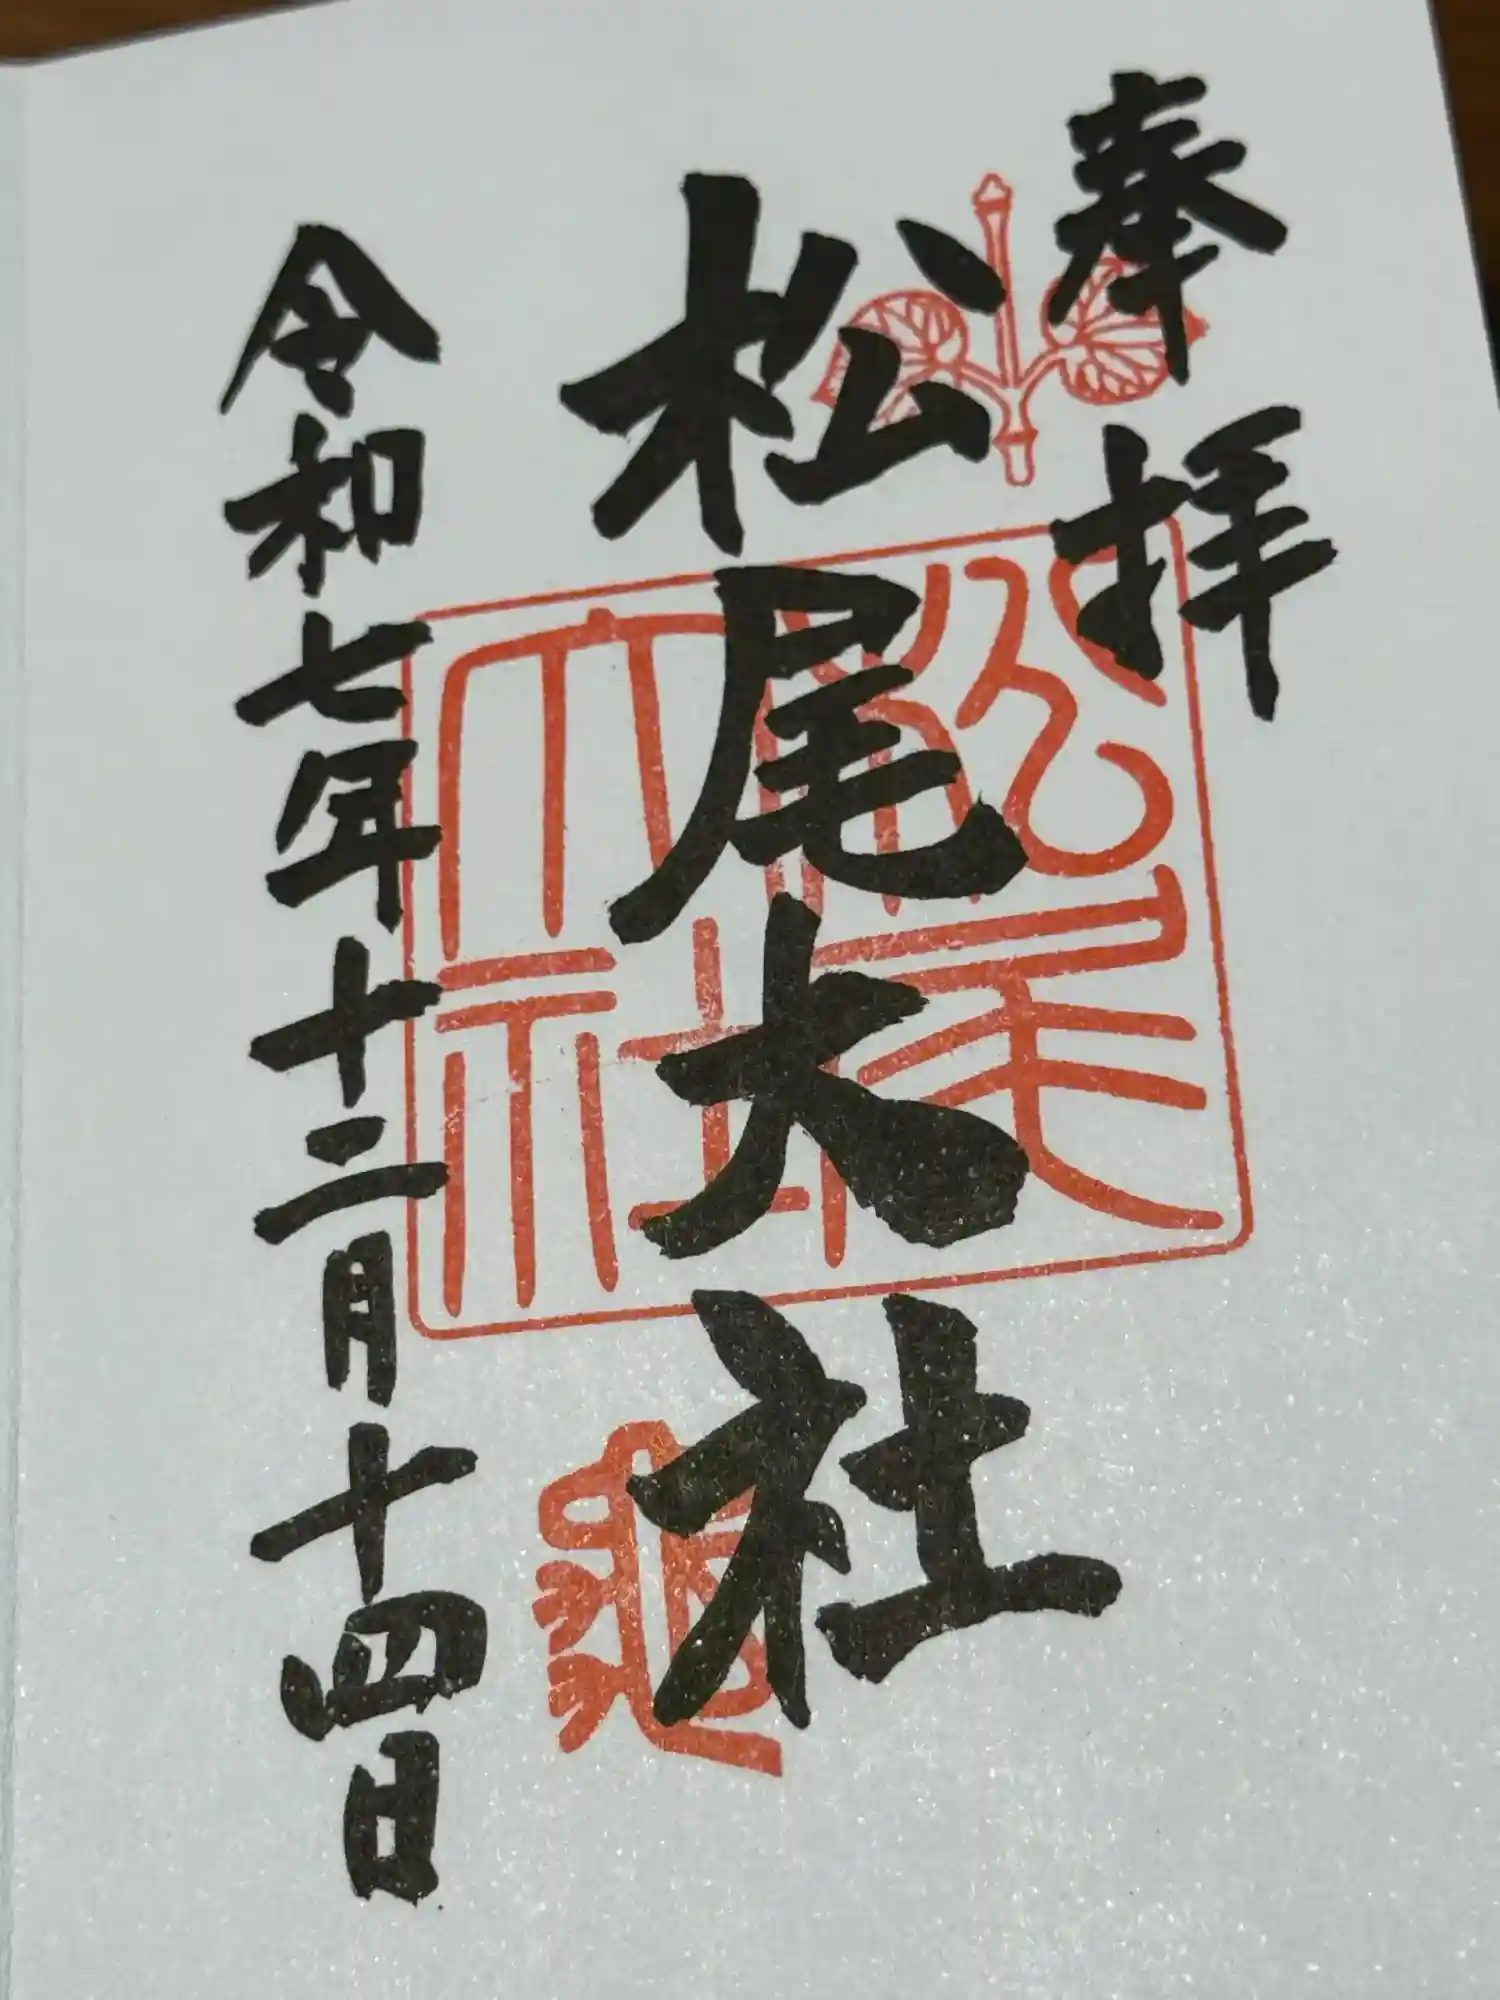 奉拝
松尾大社
松尾大社
亀
令和七年十二月十四日